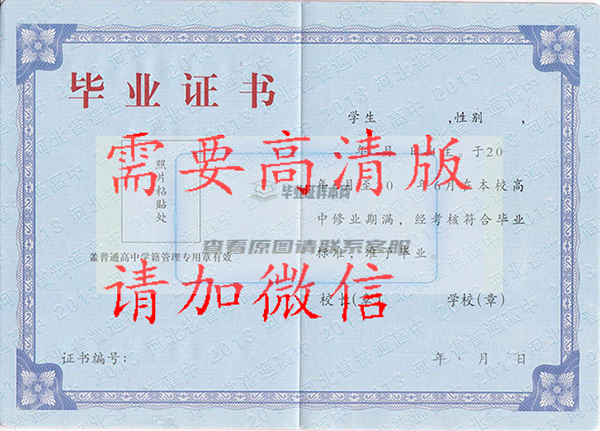 毕业证书
照片粘贴处
盖普通高中学籍管理专用章有效
证书编号:
学生 ,性别 ,
年 月 日生 于20
年 月至20 年6月在本校高
中修业期满，经考核符合毕业
标准，准予毕业。
校长(章) 学校(章)
年·月 日
需要高清版
请加微信
毕业证样本网
查看原图请联系客服